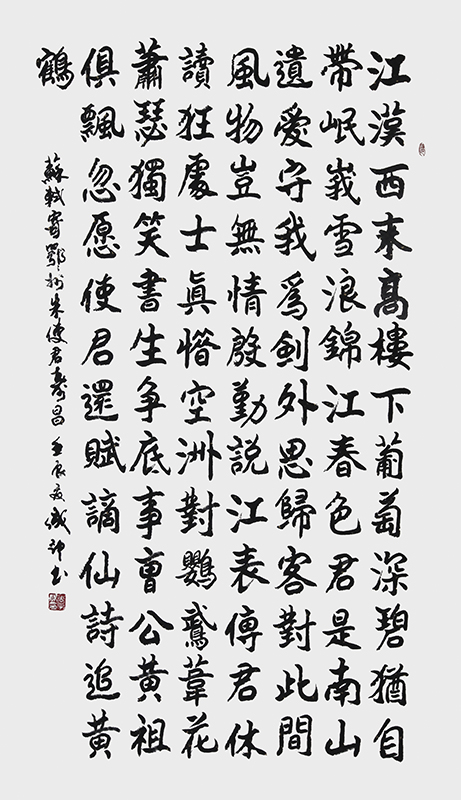 江漢西来高樓下葡萄深碧猶自
帶岷峩雪浪錦江春色君是南山
遺愛守我為劍外思歸客對此間
風物豈無情殷勤説江表傳君休
讀狂處士眞惜空洲對鸚鵡葦花
蕭瑟獨笑書生争底事曹公黄祖
俱飄忽愿使君還賦謫仙詩追黄
鶴
蘇軾寄鄂州朱使君壽昌 壬辰夏 書